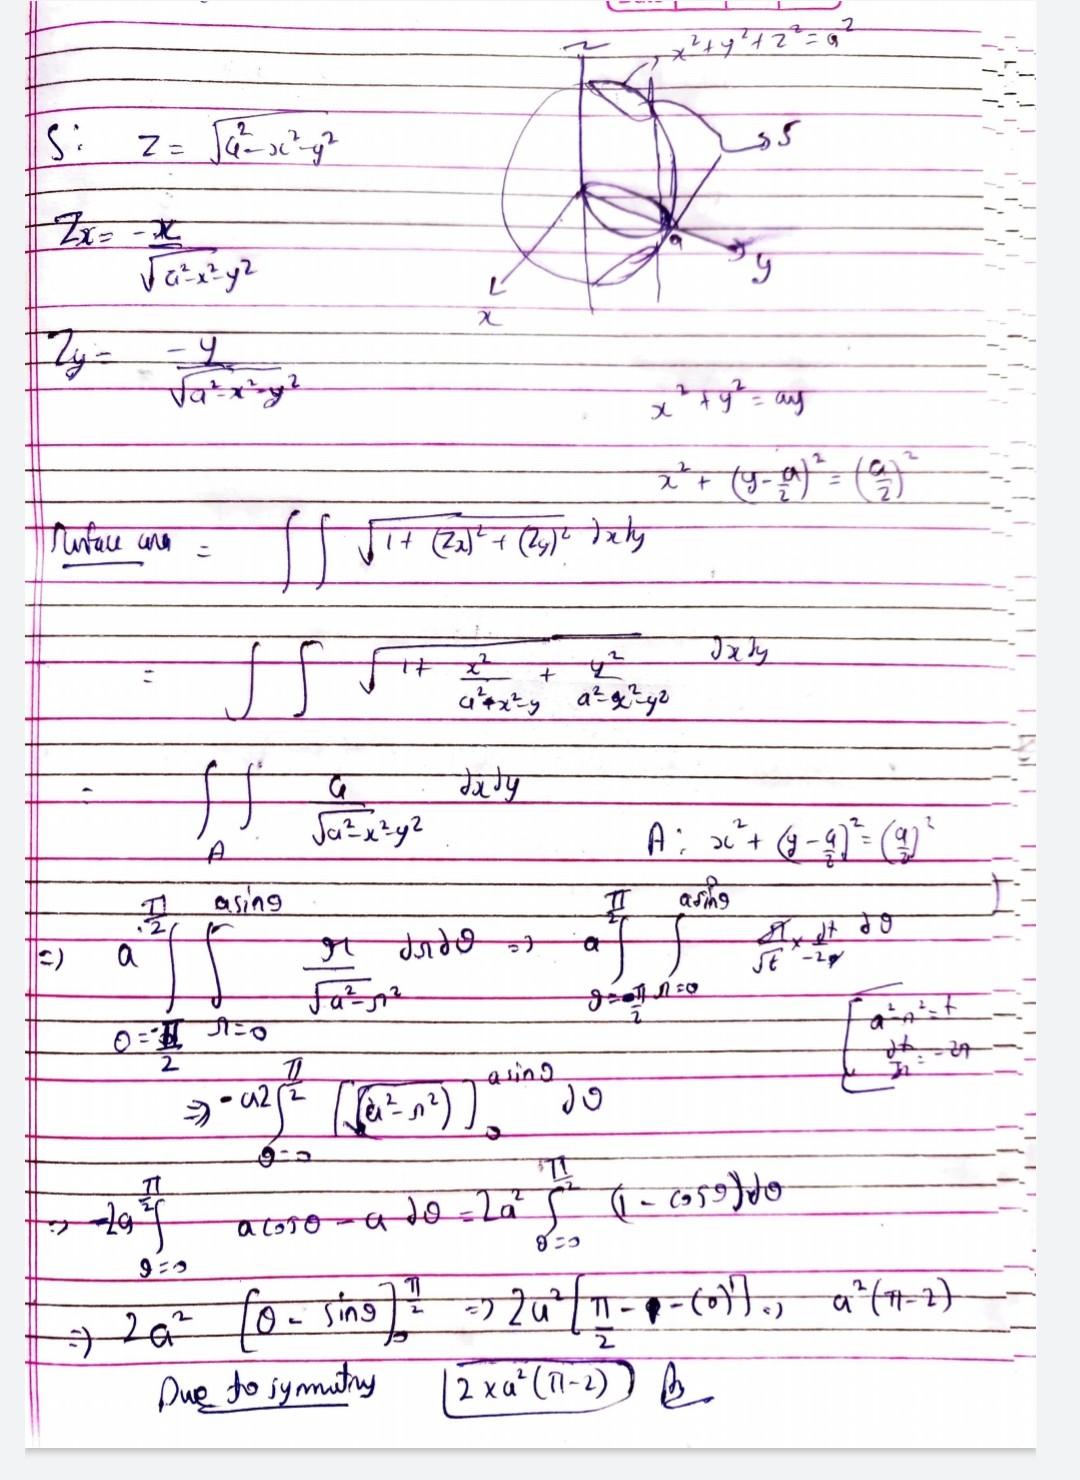 z
x²+y²+z²=a²
S: z = √a²-x²-y²
→S
Zx = -x/√a²-x²-y²
a
y
x
Zy = -y/√a²-x²-y²
x²+y² = ay
x² + (y-a/2)² = (a/2)²
Surface area = ∫∫ √1+ (Zx)² + (Zy)² dxdy
= ∫∫ √1+ x²/a²-x²-y + y²/a²-x²-y² dxdy
= ∫∫_A a/√a²-x²-y² dxdy
A: x² + (y-a/2)² = (a/2)²
=> a ∫_{θ=-π/2}^{π/2} ∫_{r=0}^{asinθ} r/√a²-r² drdθ => a ∫_{θ=-π/2}^{π/2} ∫_{r=0}^{asinθ} r/√t × dt/-2r dθ
[a²-r²=t
dt/dr = -2r
=> -a2 ∫_{θ=0}^{π/2} [√(a²-r²)]_0^{asinθ} dθ
=> -2a ∫_{θ=0}^{π/2} acosθ - a dθ = 2a² ∫_{θ=0}^{π/2} (1-cosθ)dθ
=> 2a² [θ - sinθ]_0^{π/2} => 2a² [π/2 - 1 - (0)] => a²(π-2)
Due to symmetry 2×a²(π-2)